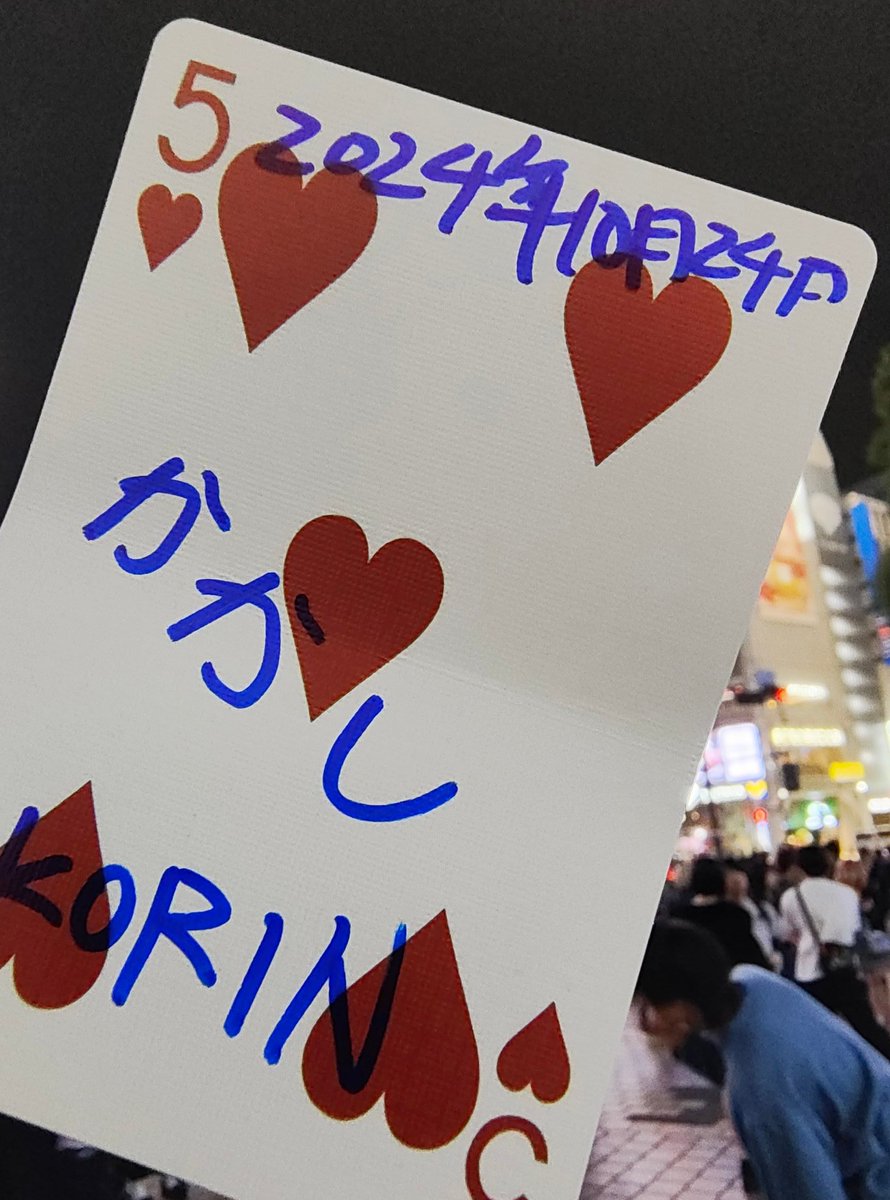 5
2024年10月24日
かかし
KORIN
5